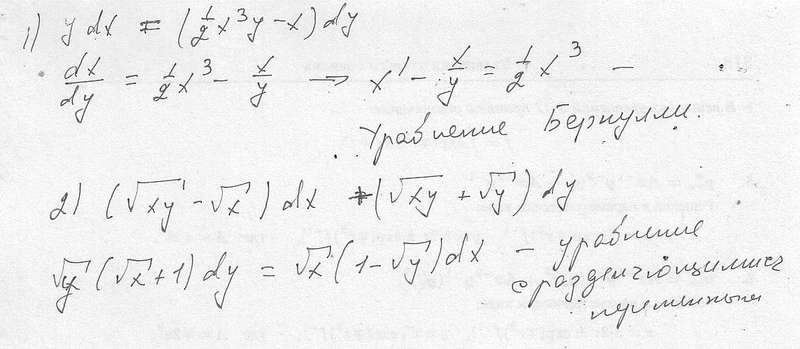 1) y dx = (1/2 x³y − x) dy
dx/dy = 1/2 x³ − x/y → x' − x/y = 1/2 x³ −
Уравнение Бернулли.
2) (√xy − √x) dx + (√xy + √y) dy
√y (√x + 1) dy = √x (1 − √y) dx − уравнение
с разделяющимися
переменными